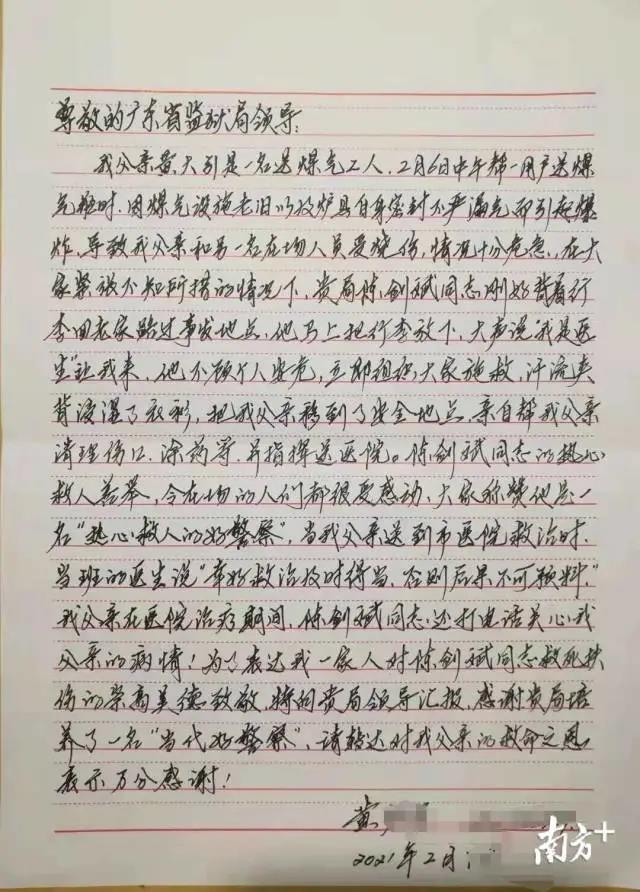 尊敬的广东省监狱局领导:
我父亲黄大别是一名送煤气工人,2月6日中午帮一用户送煤
气瓶时,因煤气设施老旧以及炉具自身密封不严漏气而引起爆
炸,导致我父亲和另一名在场人员受烧伤,情况十分危急,在大
家紧张不知所措的情况下,贵局陈剑斌同志刚好背着行
李回老家路过事发地点,他马上把行李放下,大声说"我是医
生"让我来,他不顾个人安危,立即组织大家施救,汗流夹
背浸湿了衣衫,把我父亲移到了安全地点,亲自帮我父亲
清理伤口、涂药等,并指挥送医院。陈剑斌同志的热心
救人善举,令在场的人们都很受感动,大家称赞他是一
名"热心救人的好警察",当我父亲送到市医院救治时,
当班的医生说"幸好救治及时得当,否则后果不可预料,"
我父亲在医院治疗期间,陈剑斌同志还打电话关心我
父亲的病情!为了表达我一家人对陈剑斌同志救死扶
伤的崇高美德致敬,特向贵局领导汇报,感谢贵局培
养了一名"当代好警察",请转达对我父亲的救命之恩
表示万分感谢!
黄
2021年2月
南方+